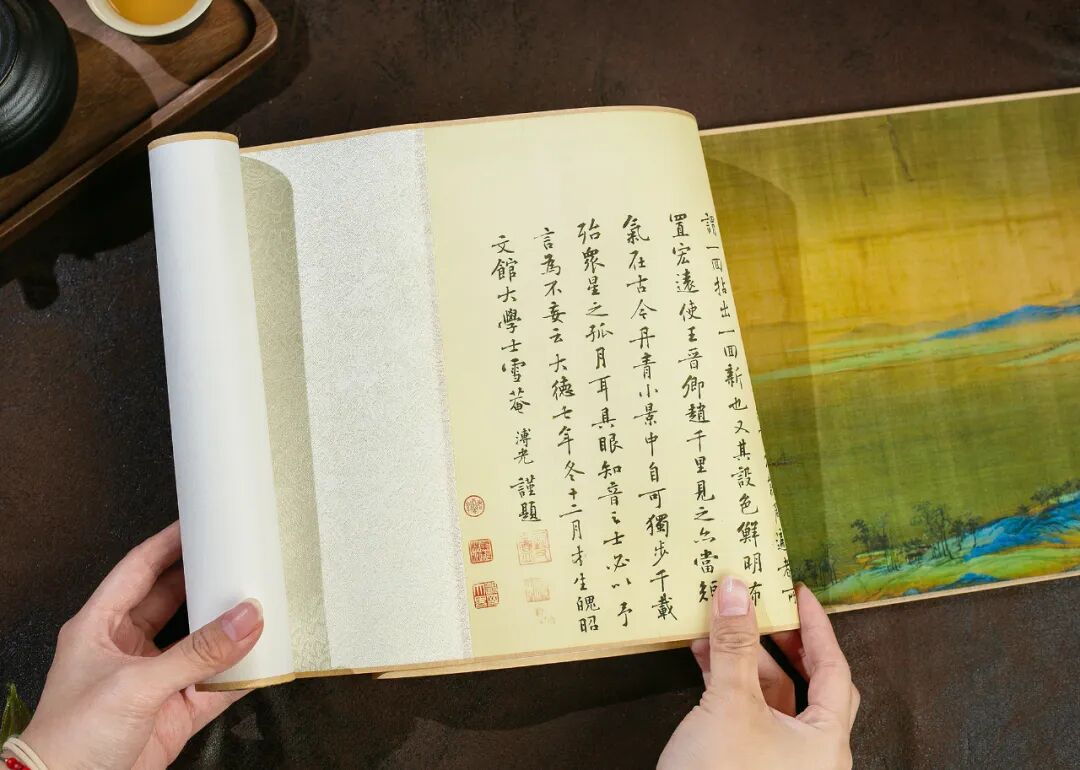 遍者所
謂一回拈出一回新也又其設色鮮明布
置宏遠使王晉卿趙千里見之亦當短
氣在古今丹青小景中自可獨步千載
殆眾星之孤月耳具眼知音之士必以予
言為不妄云大德七年冬十二月才生魄昭
文館大學士雪菴溥光謹題